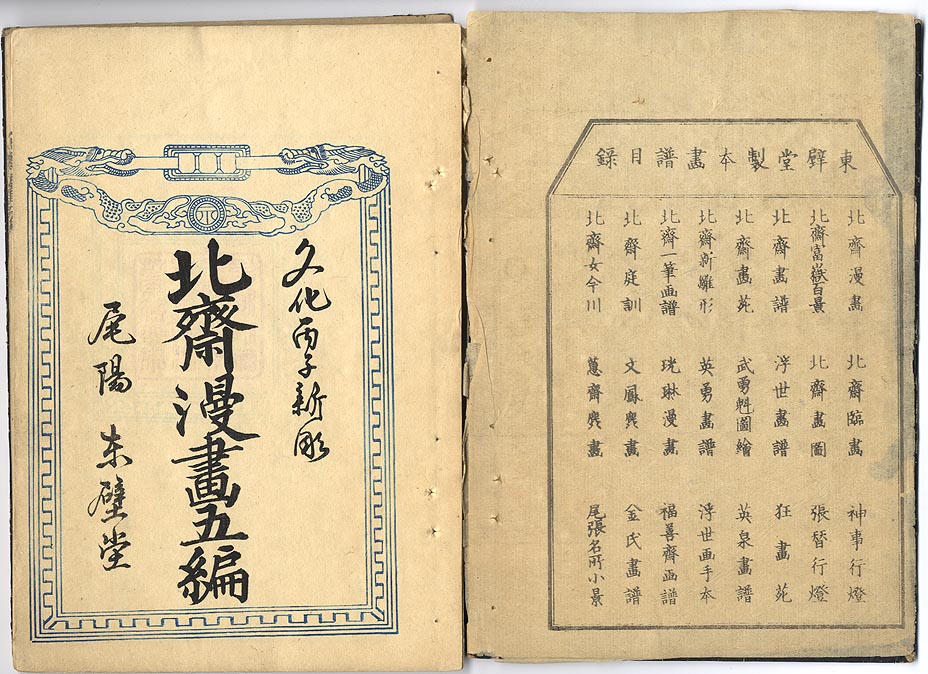 東壁堂製本畫譜目錄
北齋漫畫 北齋臨畫 神事行燈
北齋富嶽百景 北齋畫圖 張替行燈
北齋畫譜 浮世畫譜 狂畫苑
北齋畫苑 武勇魁圖繪 英泉畫譜
北齋新雛形 英勇畫譜 浮世画手本
北齋一筆画譜 珖琳漫畫 福善齋画譜
北齋庭訓 文鳳麁畫 金氏畫譜
北齋女今川 蕙齋麁畫 尾張名所小景
文化丙子新彫
北齋漫畫五編
尾陽 東壁堂